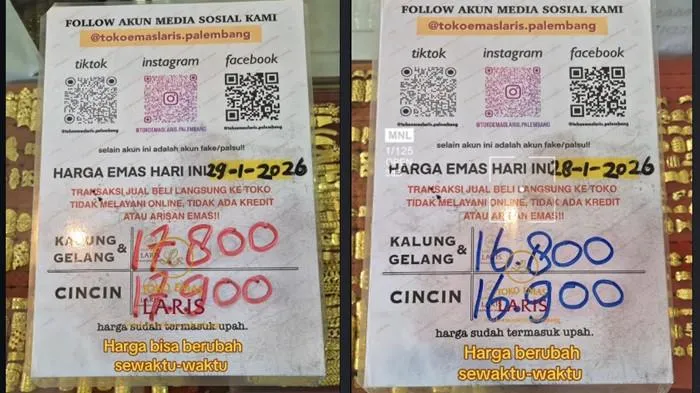 FOLLOW AKUN MEDIA SOSIAL KAMI
@tokoemaslaris.palembang
tiktok instagram facebook
@tokoemaslaris.palembang @TOKOEMASLARIS.PALEMBANG @tokoemaslaris.palembang
selain akun ini adalah akun fake/palsu!!
HARGA EMAS HARI INI 29-1-2026
TRANSAKSI JUAL BELI LANGSUNG KE TOKO
TIDAK MELAYANI ONLINE, TIDAK ADA KREDIT
ATAU ARISAN EMAS!!
KALUNG & GELANG 17.800
CINCIN 17.900
TOKO EMAS
LARIS
harga sudah termasuk upah.
Harga bisa berubah
sewaktu-waktu
FOLLOW AKUN MEDIA SOSIAL KAMI
@tokoemaslaris.palembang
tiktok instagram facebook
@tokoemaslaris.palembang @TOKOEMASLARIS.PALEMBANG @tokoemaslaris.palembang
MNL
1/125
OPEN
selain akun ini adalah akun fake/palsu!!
HARGA EMAS HARI INI 28-1-2026
TRANSAKSI JUAL BELI LANGSUNG KE TOKO
TIDAK MELAYANI ONLINE, TIDAK ADA KREDIT
ATAU ARISAN EMAS!!
KALUNG & GELANG 16.800
CINCIN 16.900
TOKO EMAS
LARIS
harga sudah termasuk upah.
Harga berubah
sewaktu-waktu